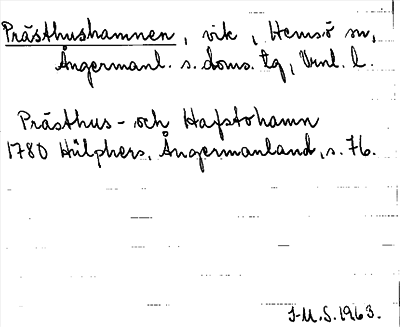 Prästhushamnen, vik, Hemsö sn,
Ångermanl. s. doms. tg, Vnl. l.
Prästhus- och Hafstohamn
1780 Hülphers, Ångermanland, s. 76.
I-M.S. 1963.